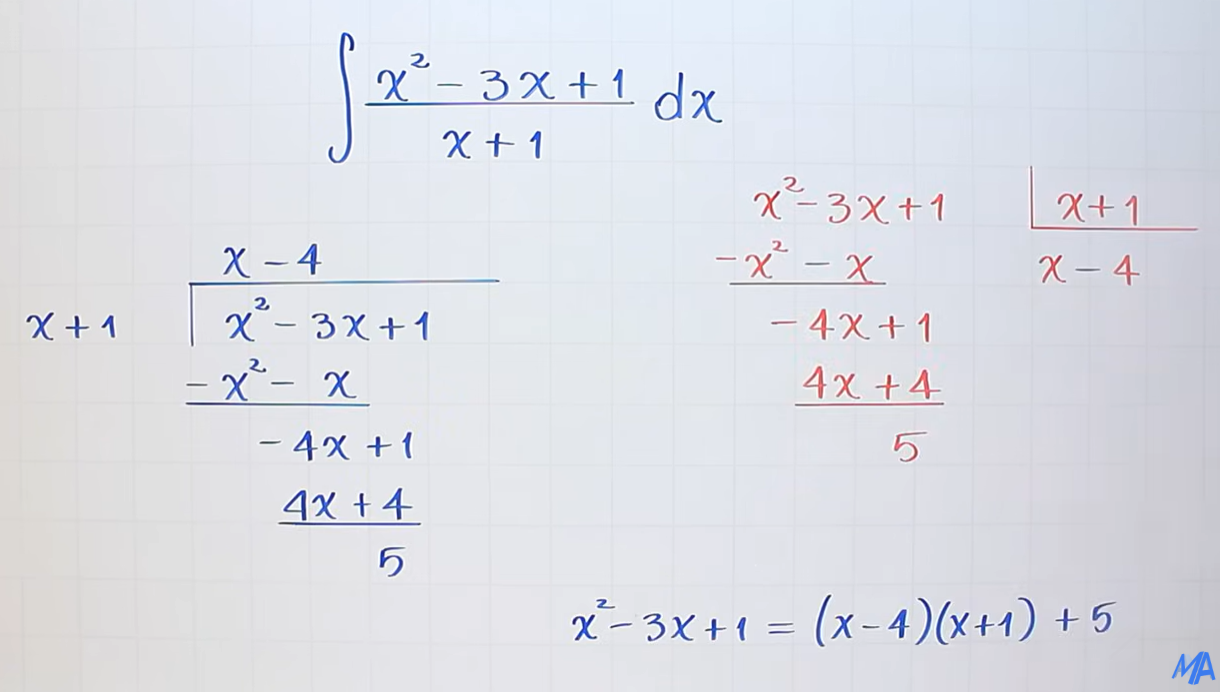 ∫ x² - 3x + 1 / x + 1 dx
x - 4
x + 1 x² - 3x + 1
- x² - x
- 4x + 1
4x + 4
5
x² - 3x + 1 x + 1
- x² - x x - 4
- 4x + 1
4x + 4
5
x² - 3x + 1 = (x - 4)(x + 1) + 5
MA